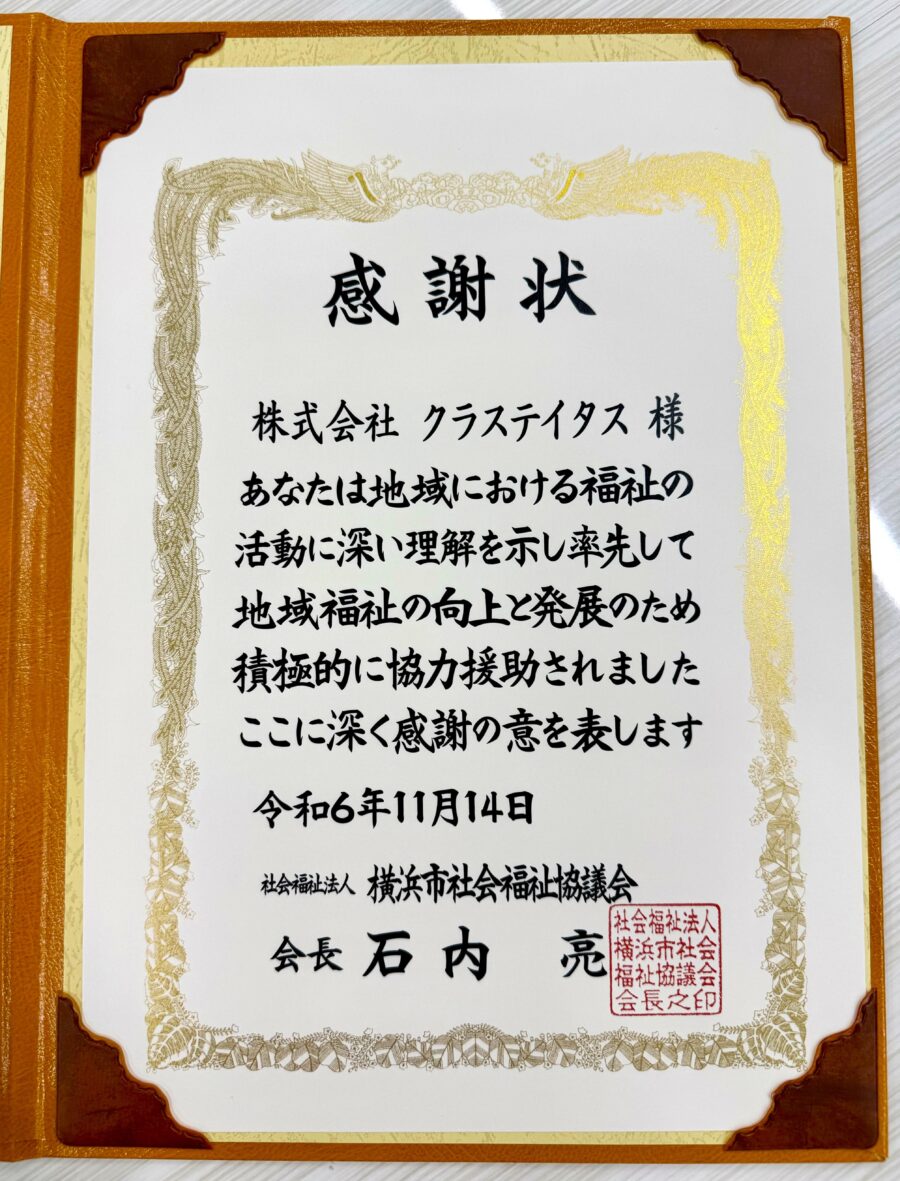 感謝状
株式会社 クラステイタス 様
あなたは地域における福祉の
活動に深い理解を示し率先して
地域福祉の向上と発展のため
積極的に協力援助されました
ここに深く感謝の意を表します
令和6年11月14日
社会福祉法人 横浜市社会福祉協議会
会長 石内 亮
社会福祉法人
横浜市社会
福祉協議会
会長之印